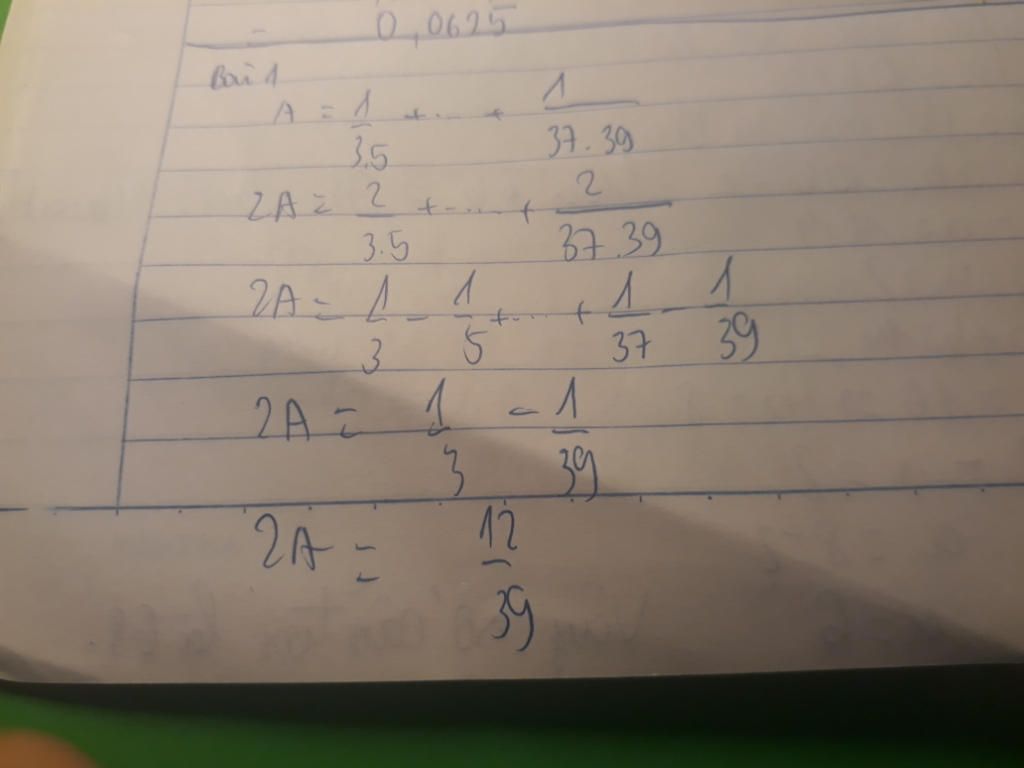 = 0,0625
Bài 1
A = 1/3.5 + ... + 1/37.39
2A = 2/3.5 + ... + 2/37.39
2A = 1/3 - 1/5 + ... + 1/37 - 1/39
2A = 1/3 - 1/39
2A = 12/39